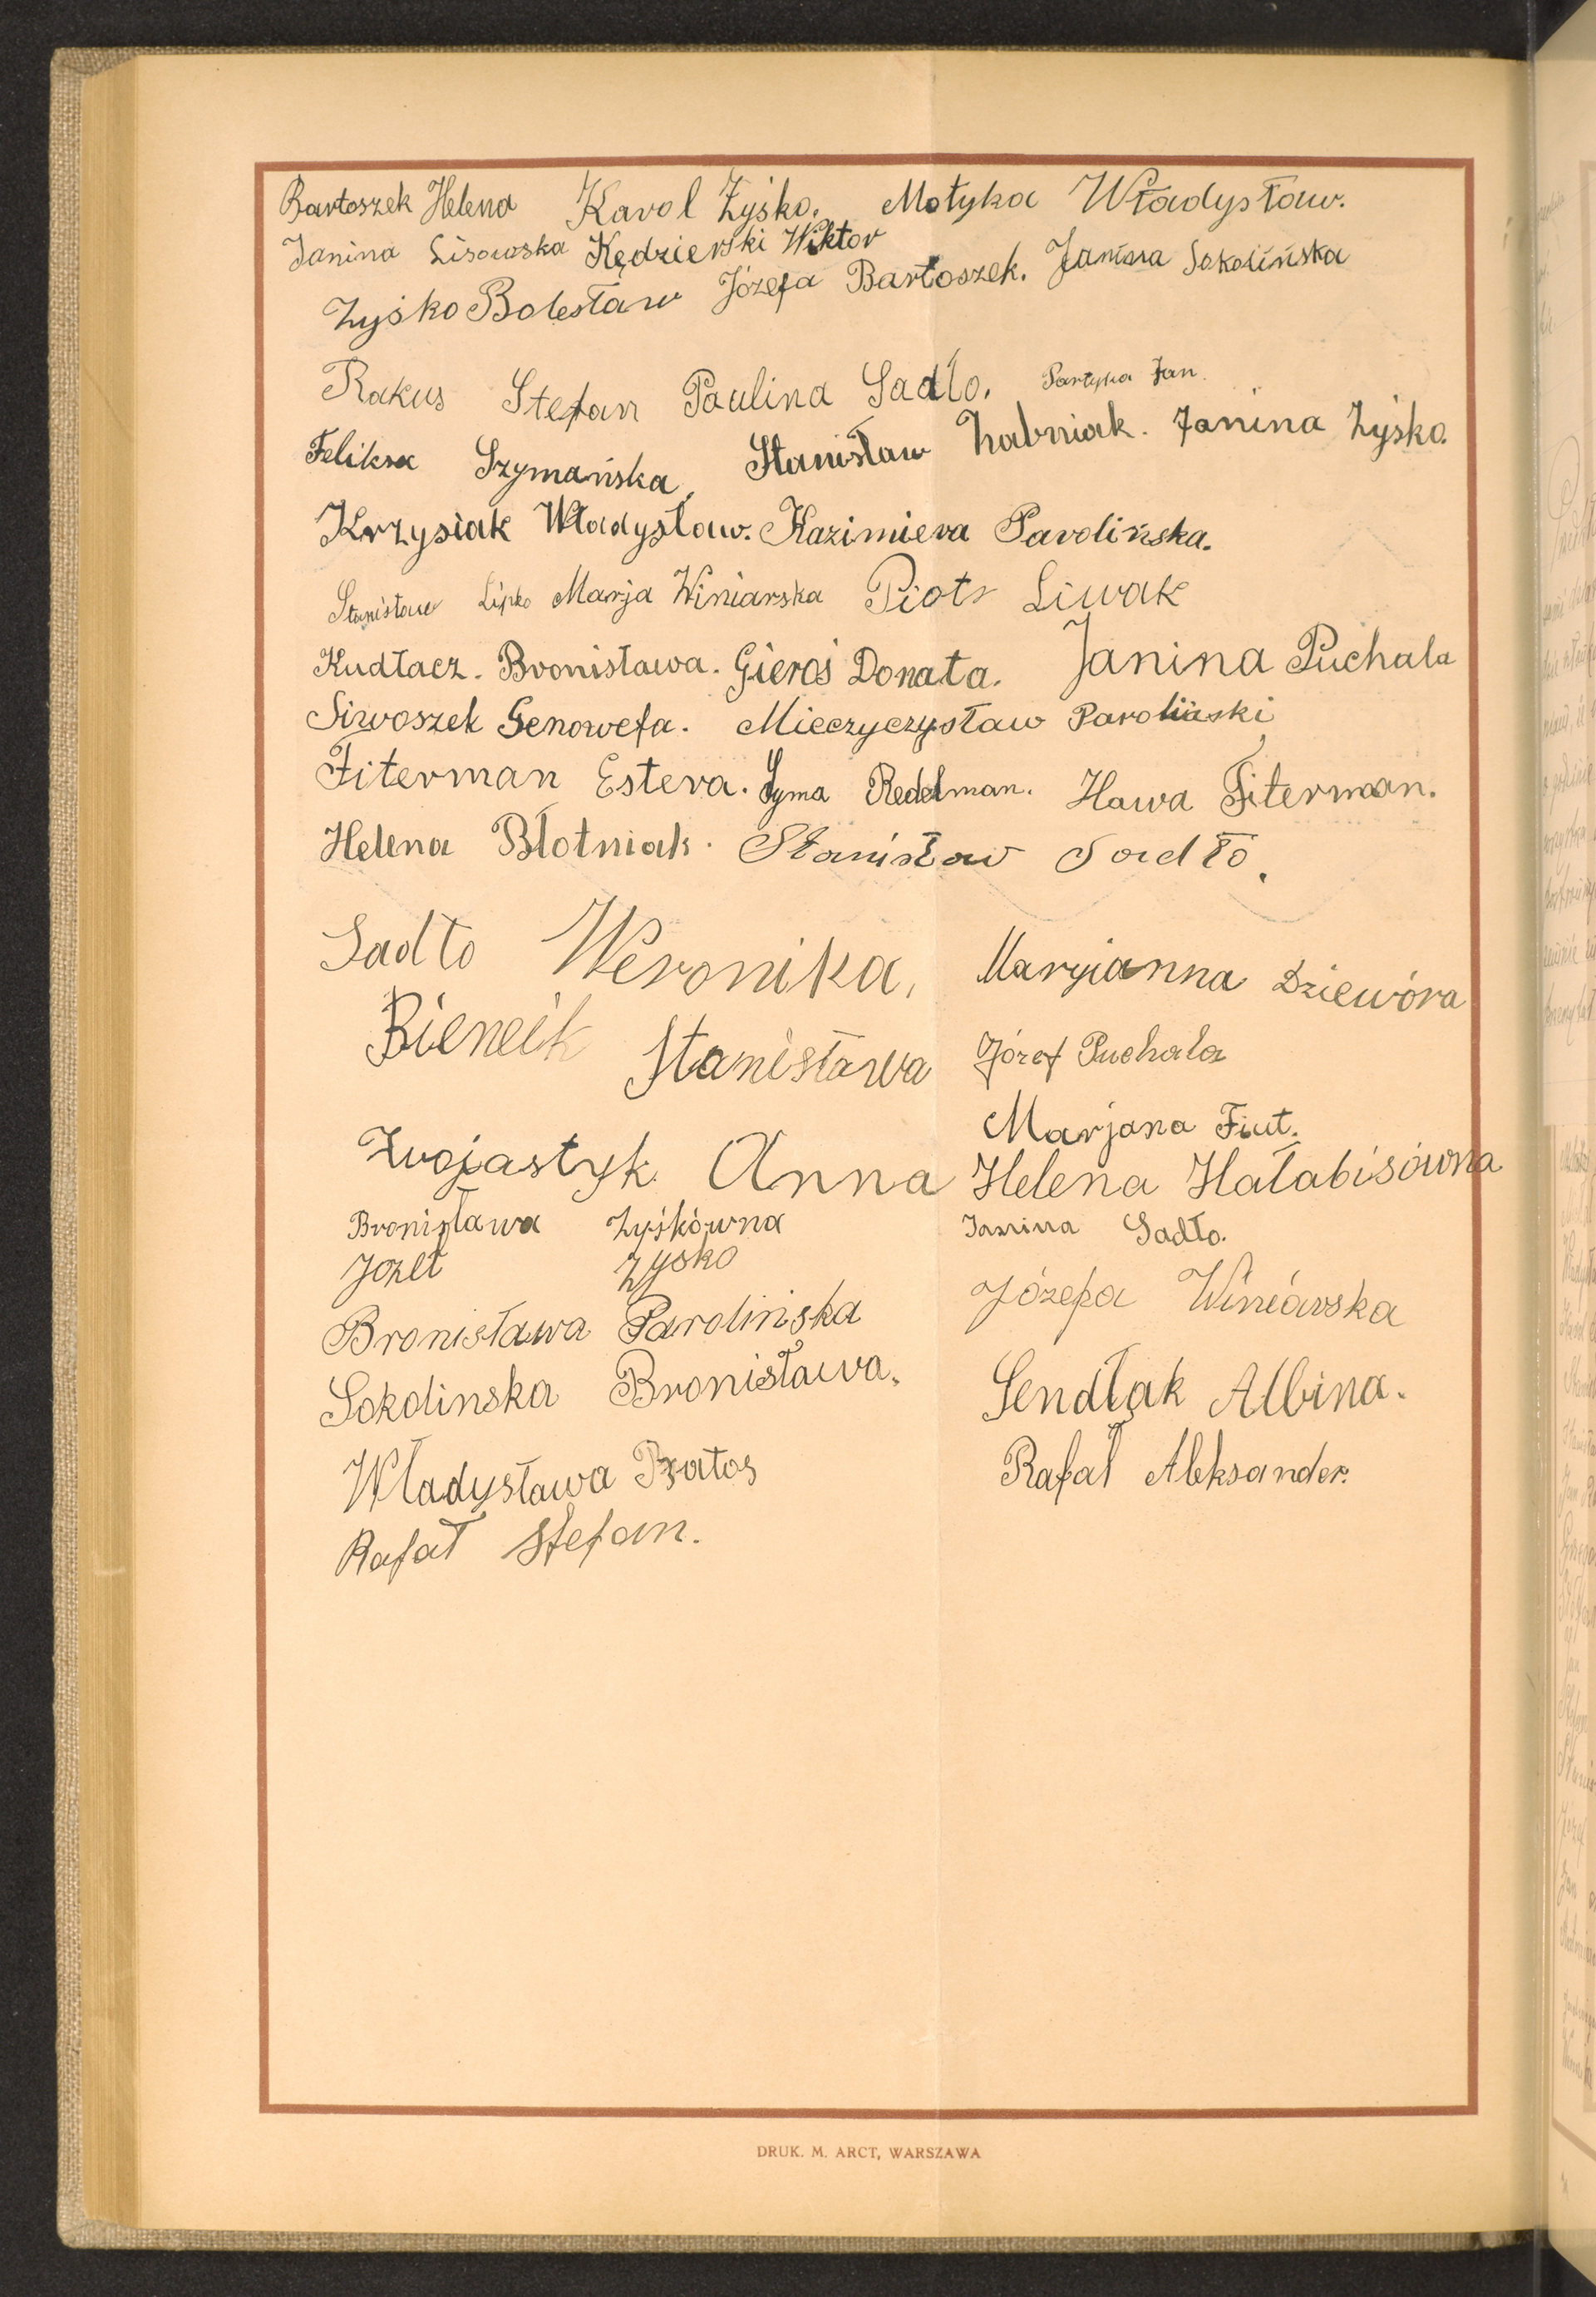 Bartoszek Helena Karol Zyśko. Motyka Władysław.
Janina Lisowska Kędzierski Wiktor
Zyśko Bolesław Józefa Bartoszek. Janina Sokolińska
Rakus Stefan Paulina Sadło. Partyka Jan.
Feliksa Szymańska, Stanisław Żabniak. Janina Zyśko.
Krzysiak Władysław. Kazimiera Parolińska.
Stanisław Lipko Marja Winiarska Piotr Liwak
Kudłacz. Bronisława. Gieroś Donata. Janina Puchala
Siwoszek Genowefa. Mieczyczysław Paroliński
Fiterman Estera. Syma Redelman. Hawa Fiterman.
Helena Błotniak. Stanisław Sadło.
Sadło Weronika, Maryianna Dziewóra
Bieneik Stanisława Józef Puchala
Marjana Fiut.
Zwojastyk Anna Helena Hałabisówna
Bronisława Zyśkówna Janina Sadło.
Józef Zyśko
Bronisława Parolińska Józefa Winiarska
Sokolinska Bronisława. Sendłak Albina.
Władysława Bratos Rafał Aleksander.
Rafał Stefan.
DRUK. M. ARCT, WARSZAWA